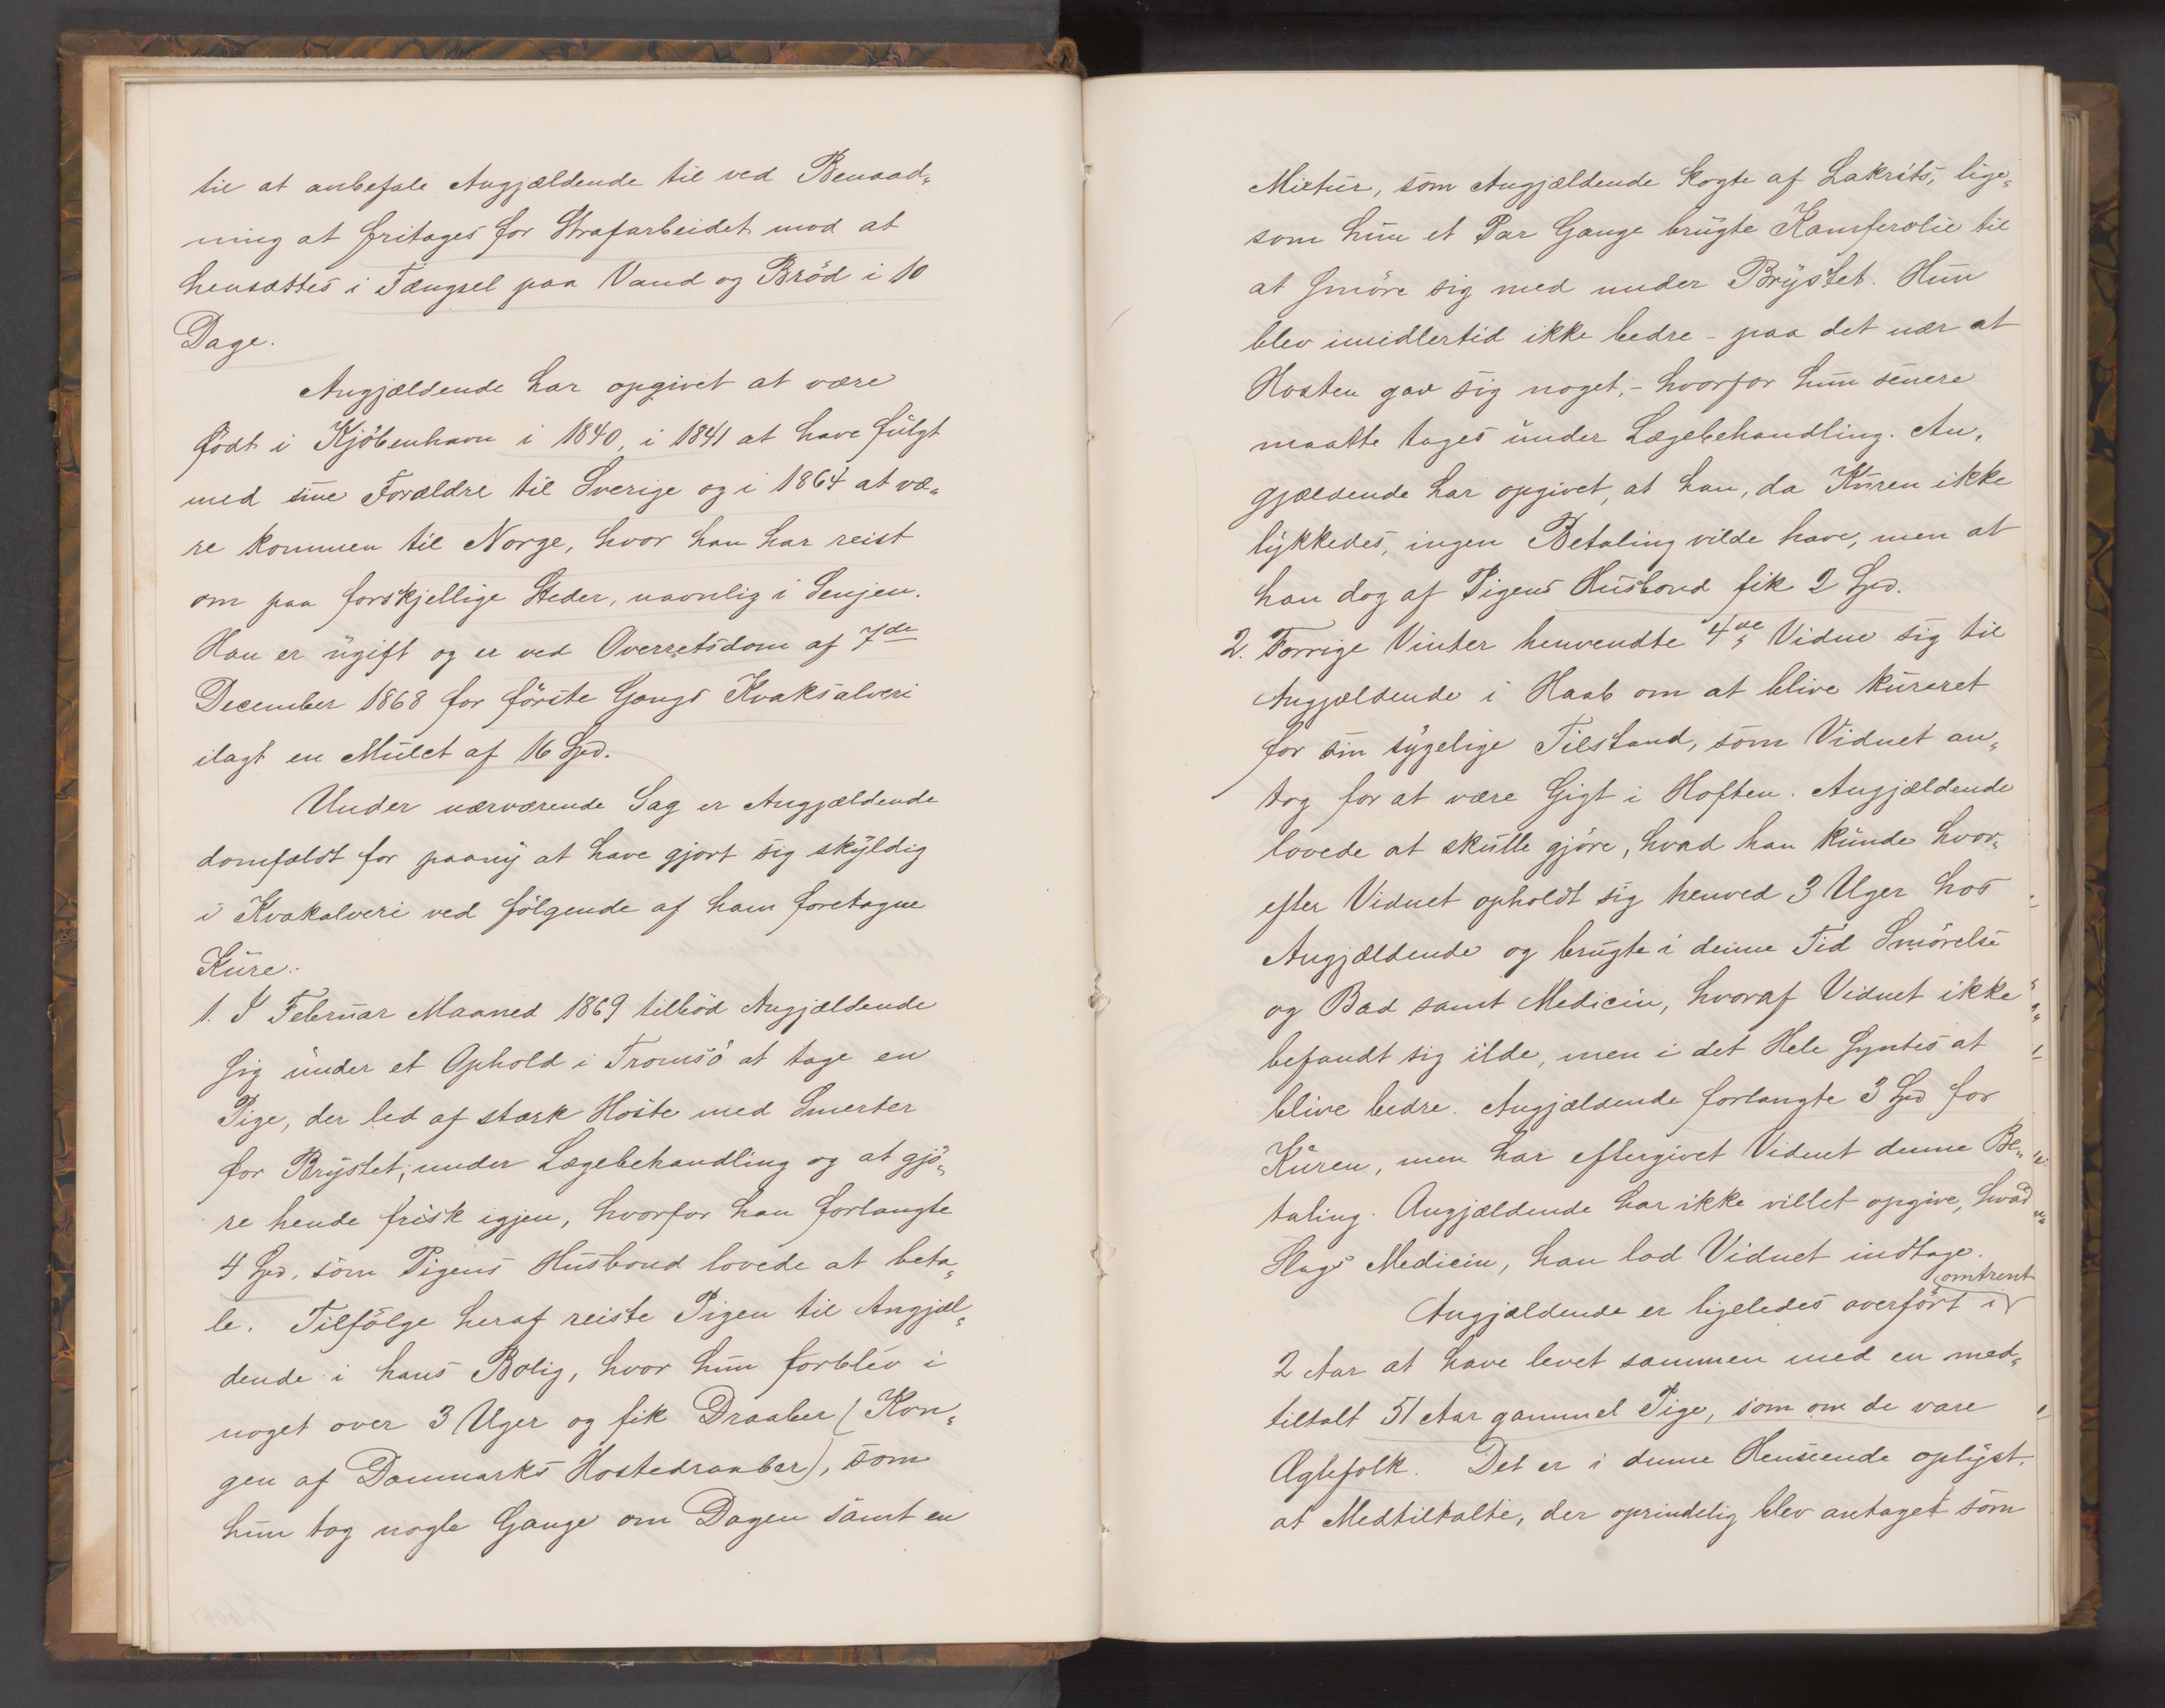 til at anbefale Angjældende til ved Benaad„
ning at fritages for Strafarbeidet mod at
hensættes i Fængsel paa Vand og Brød i 10
Dage.
Angjældende har opgivet at være
født i Kjøbenhavn i 1840, i 1841 at have fulgt
med sine Forældre til Sverige og i 1864 at væ„
re kommen til Norge, hvor han har reist
om paa forskjellige Steder, navnlig i Senjen.
Han er ugift og er ved Overretsdom af 7de
December 1868 for første Gangs Kvaksalveri
ilagt en Mulct af 16 Spd.
Under nærværende Sag er Angjældende
domfældt for paany at have gjort sig skyldig
i Kvakalveri ved følgende af ham foretagne
Kure:
1. I Februar Maaned 1869 tilbød Angjældende
sig under et Ophold i Tromsø at tage en
Pige, der led af stærk Hoste med Smerter
for Brystet, under Lægebehandling og at gjø„
re hende frisk igjen, hvorfor han forlangte
4 Spd. som Pigens Husbond lovede at beta„
le. Tilfølge heraf reiste Pigen til Angjæl„
dende i hans Bolig, hvor hun forblev i
noget over 3 Uger og fik Draaber (Kon„
gen af Danmarks Hostedraaber), som
hun tog nogle Gange om Dagen samt en
Mixtur, som Angjældende kogte af Lakrits, lige„
som hun et Par Gange brugte Kamferolie til
at smøre sig med under Brystet. Hun
blev imidlertid ikke bedre – paa det nær at
Hosten gav sig noget, – hvorfor hun senere
maatte tages under Lægebehandling. An„
gjældende har opgivet, at han, da Kuren ikke
lykkedes, ingen Betaling vilde have, men at
han dog af Pigens Husbond fik 2 Spd.
2. Forrige Vinter henvendte 4de Vidne sig til
Angjældende i Haab om at blive kureret
for sin sygelige Tilstand, som Vidnet an„
tog for at være Gigt i Hoften. Angjældende
lovede at skulle gjøre, hvad han kunde hvor„
efter Vidnet opholdt sig henved 3 Uger hos
Angjældende og brugte i denne Tid Smørelse
og Bad samt Medicin, hvoraf Vidnet ikke
befandt sig ilde, men i det Hele syntes at
blive bedre. Angjældende forlangte 3 Spd for
Kuren, men har eftergivet Vidnet denne Be„
taling. Angjældende har ikke villet opgive, hvad
Slags Medicin, han lod Vidnet indtage.
omtrent
Angjældende er ligeledes overført i
2 Aar at have levet sammen med en med„
tiltalt 51 Aar gammel Pige, som om de vare
Ægtefolk. Det er i denne Henseende oplyst,
at Medtiltalte, der oprindelig blev antaget som